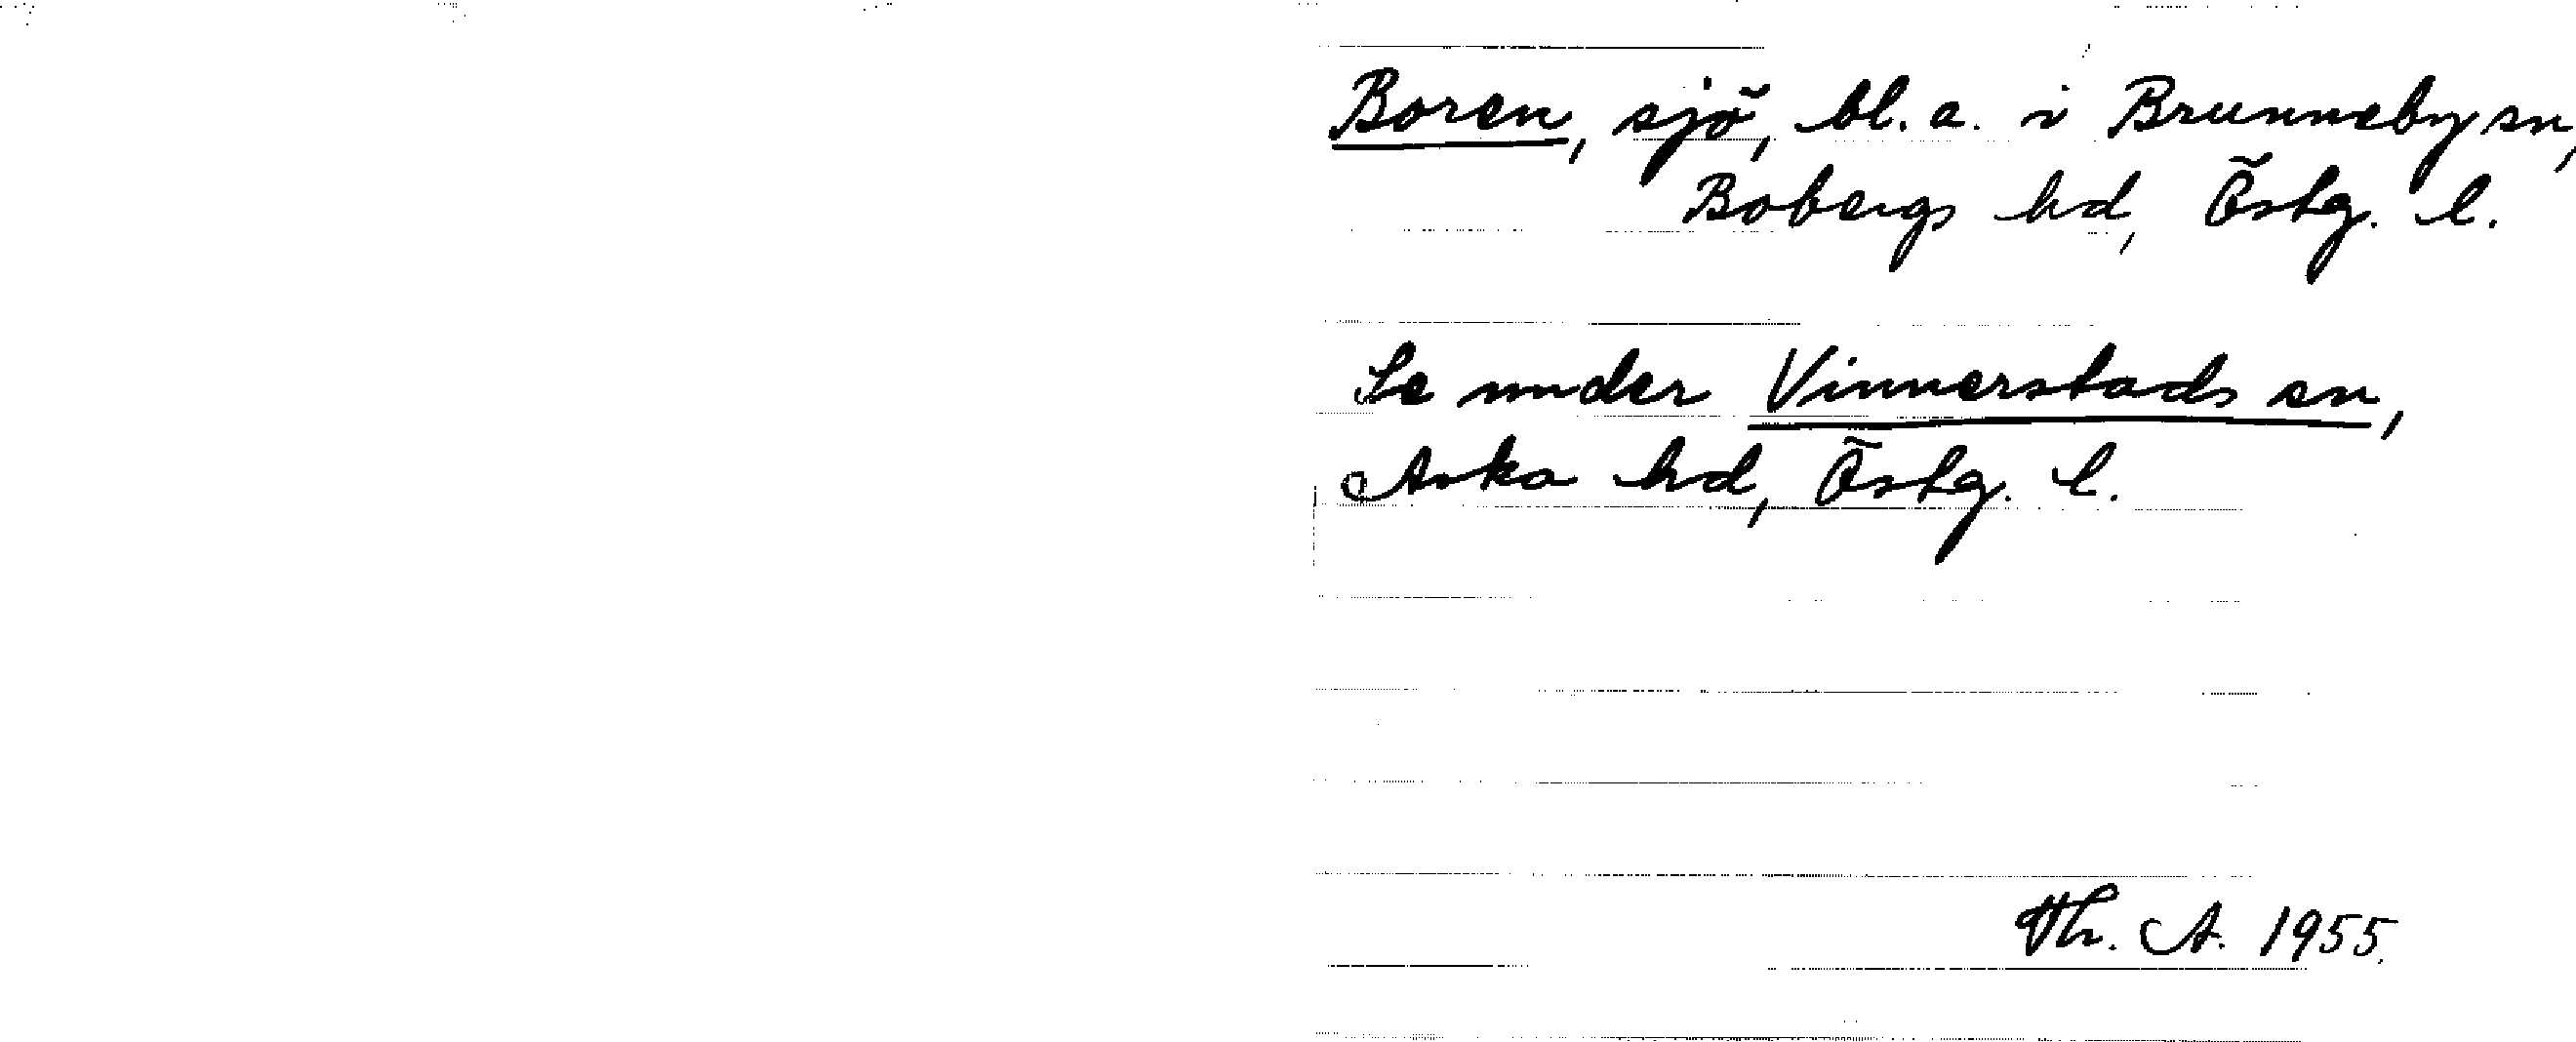 Boren, sjö, bl. a. i Brunneby sn,
Bobergs hd, Östg. l.
Se under Vinnerstads sn,
Aska hd, Östg. l.
Th. A. 1955.